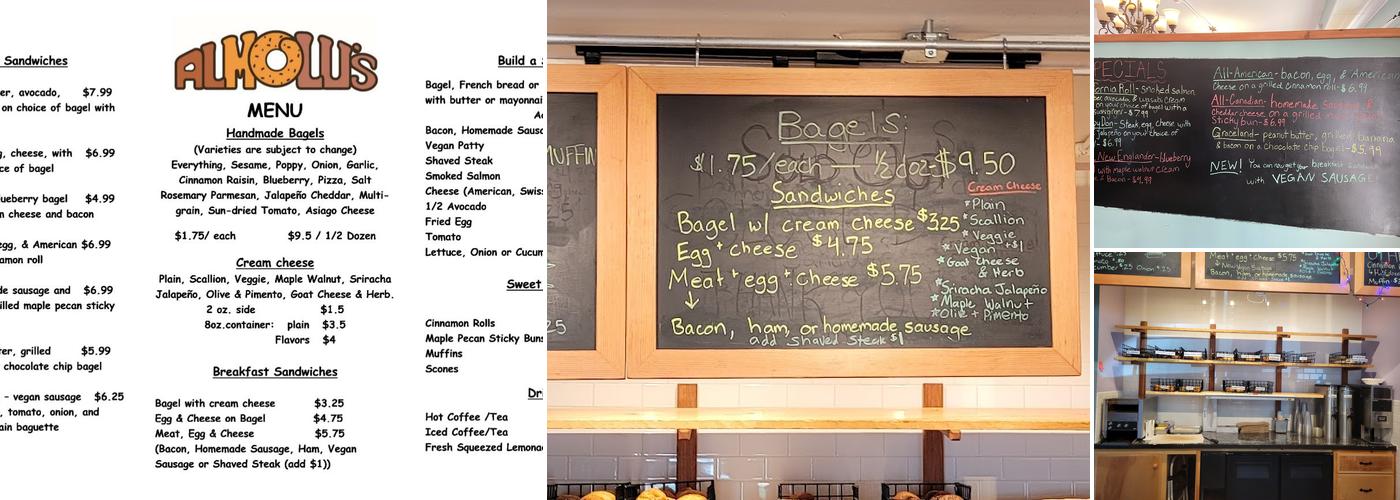 Sandwiches
er, avocado, $7.99
on choice of bagel with
g, cheese, with $6.99
ice of bagel
ueberry bagel $4.99
n cheese and bacon
egg, & American $6.99
amon roll
de sausage and $6.99
illed maple pecan sticky
ter, grilled $5.99
chocolate chip bagel
- vegan sausage $6.25
, tomato, onion, and
ain baguette
ALMOLLI'S
MENU
Handmade Bagels
(Varieties are subject to change)
Everything, Sesame, Poppy, Onion, Garlic,
Cinnamon Raisin, Blueberry, Pizza, Salt
Rosemary Parmesan, Jalapeño Cheddar, Multi-
grain, Sun-dried Tomato, Asiago Cheese
$1.75/ each $9.5 / 1/2 Dozen
Cream cheese
Plain, Scallion, Veggie, Maple Walnut, Sriracha
Jalapeño, Olive & Pimento, Goat Cheese & Herb.
2 oz. side $1.5
8oz.container: plain $3.5
Flavors $4
Breakfast Sandwiches
Bagel with cream cheese $3.25
Egg & Cheese on Bagel $4.75
Meat, Egg & Cheese $5.75
(Bacon, Homemade Sausage, Ham, Vegan
Sausage or Shaved Steak (add $1))
Build a
Bagel, French bread or
with butter or mayonnai
Bacon, Homemade Sausa
Vegan Patty
Shaved Steak
Smoked Salmon
Cheese (American, Swis
1/2 Avocado
Fried Egg
Tomato
Lettuce, Onion or Cucum
Sweet
Cinnamon Rolls
Maple Pecan Sticky Buns
Muffins
Scones
Dr
Hot Coffee /Tea
Iced Coffee/Tea
Fresh Squeezed Lemona
MUFFIN
Bagels:
$1.75/each — ½ doz-$9.50
Sandwiches
Bagel w/ cream cheese $3.25
Egg + cheese $4.75
Meat + egg + cheese $5.75
Bacon, ham, or homemade sausage
add shaved steak $1
Cream Cheese
* Plain
* Scallion
* Veggie
* Vegan +$1
* Goat Cheese
& Herb
* Sriracha Jalapeño
* Maple Walnut
* Olive + Pimento
PECIALS
ornia Roll- smoked salmon
avocado, & wasabi cream
on your choice of bagel with a
- $7.99
- Steak, egg, cheese with
Jalapeño on your choice of
- $6.99
New Englander- blueberry
with maple walnut cream
& Bacon - $4.99
All-American- bacon, egg, & America
Cheese on a grilled cinnamon roll- $6.99
All-Canadian- homemade sausage &
Cheddar cheese on a grilled
Sticky bun- $6.99
Graceland- peanut butter, grilled banana
& bacon on a Chocolate chip bagel- $5.99
NEW! You can now get your breakfast
with VEGAN SAUSAGE
Meat + egg + Cheese $5.75
Bacon, ham, or homemade sausage